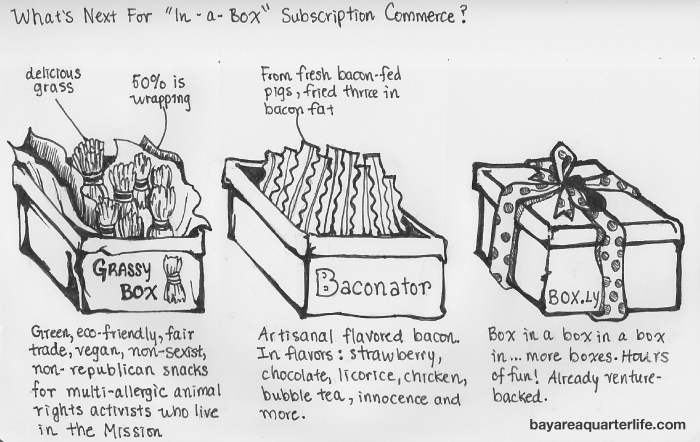 What's Next For "In-a-Box" Subscription Commerce?
delicious
grass
50% is
wrapping
GRASSY
BOX
Green, eco-friendly, fair
trade, vegan, non-sexist,
non-republican snacks
for multi-allergic animal
rights activists who live
in the Mission
From fresh bacon-fed
pigs, fried thrice in
bacon fat
Baconator
Artisanal flavored bacon.
In flavors: strawberry,
chocolate, licorice, chicken,
bubble tea, innocence and
more.
BOX.LY
Box in a box in a box
in... more boxes. Hours
of fun! Already venture-
backed.
bayareaquarterlife.com